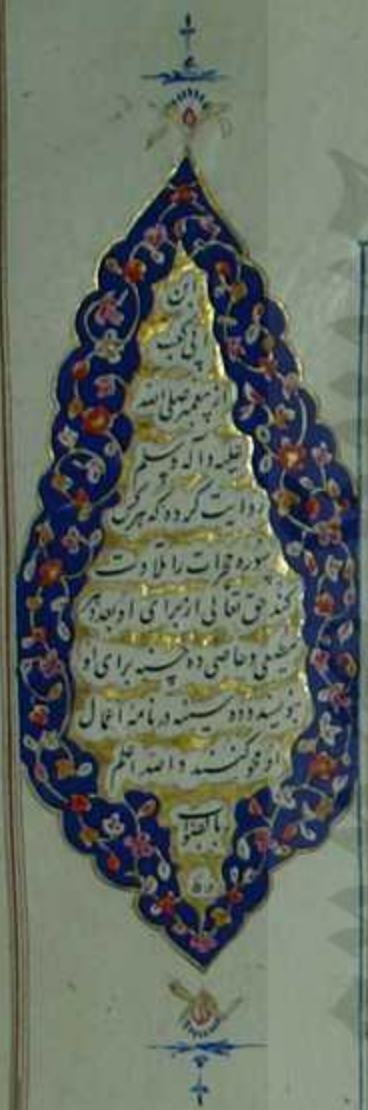 ابن
ابی کعب
از پیغمبر صلی الله
علیه و آله و سلم
روایت کرده که هر کس
سوره حجرات را تلاوت
کند حق تعالی از برای او بعدد
مطیعی و عاصی ده حسنه برای او
بنویسد و ده سیئه در نامه اعمال
او محو کنند و الله اعلم
بالصواب